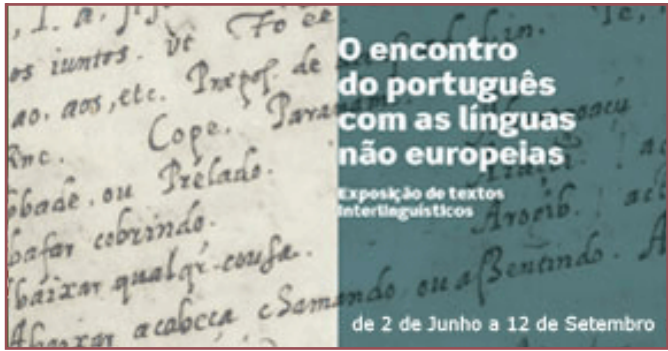 , I. a.
os iuntos. ve Fo ee
ao. aos, etc. Præpos. de
Rnc. Cope. Paranam
bbade. ou Prelado.
bafar cobrindo.
baixar qualqr-cousa.
Abaixar acabeça chamando ou assentindo. A
O encontro
do português
com as línguas
não europeias
Exposição de textos
Interlinguísticos
Aroeib.
de 2 de Junho a 12 de Setembro